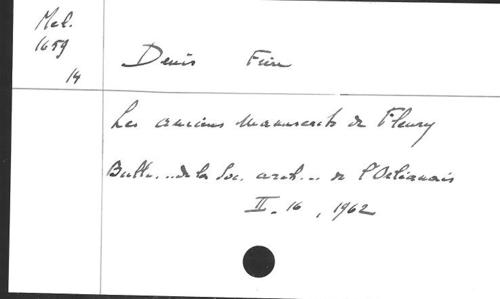 Mel.
1659
14
Denis
Les anciens Manuscrits de Fleury
Bull... de la Soc. arch... de l'Orléanais
II. 16, 1962